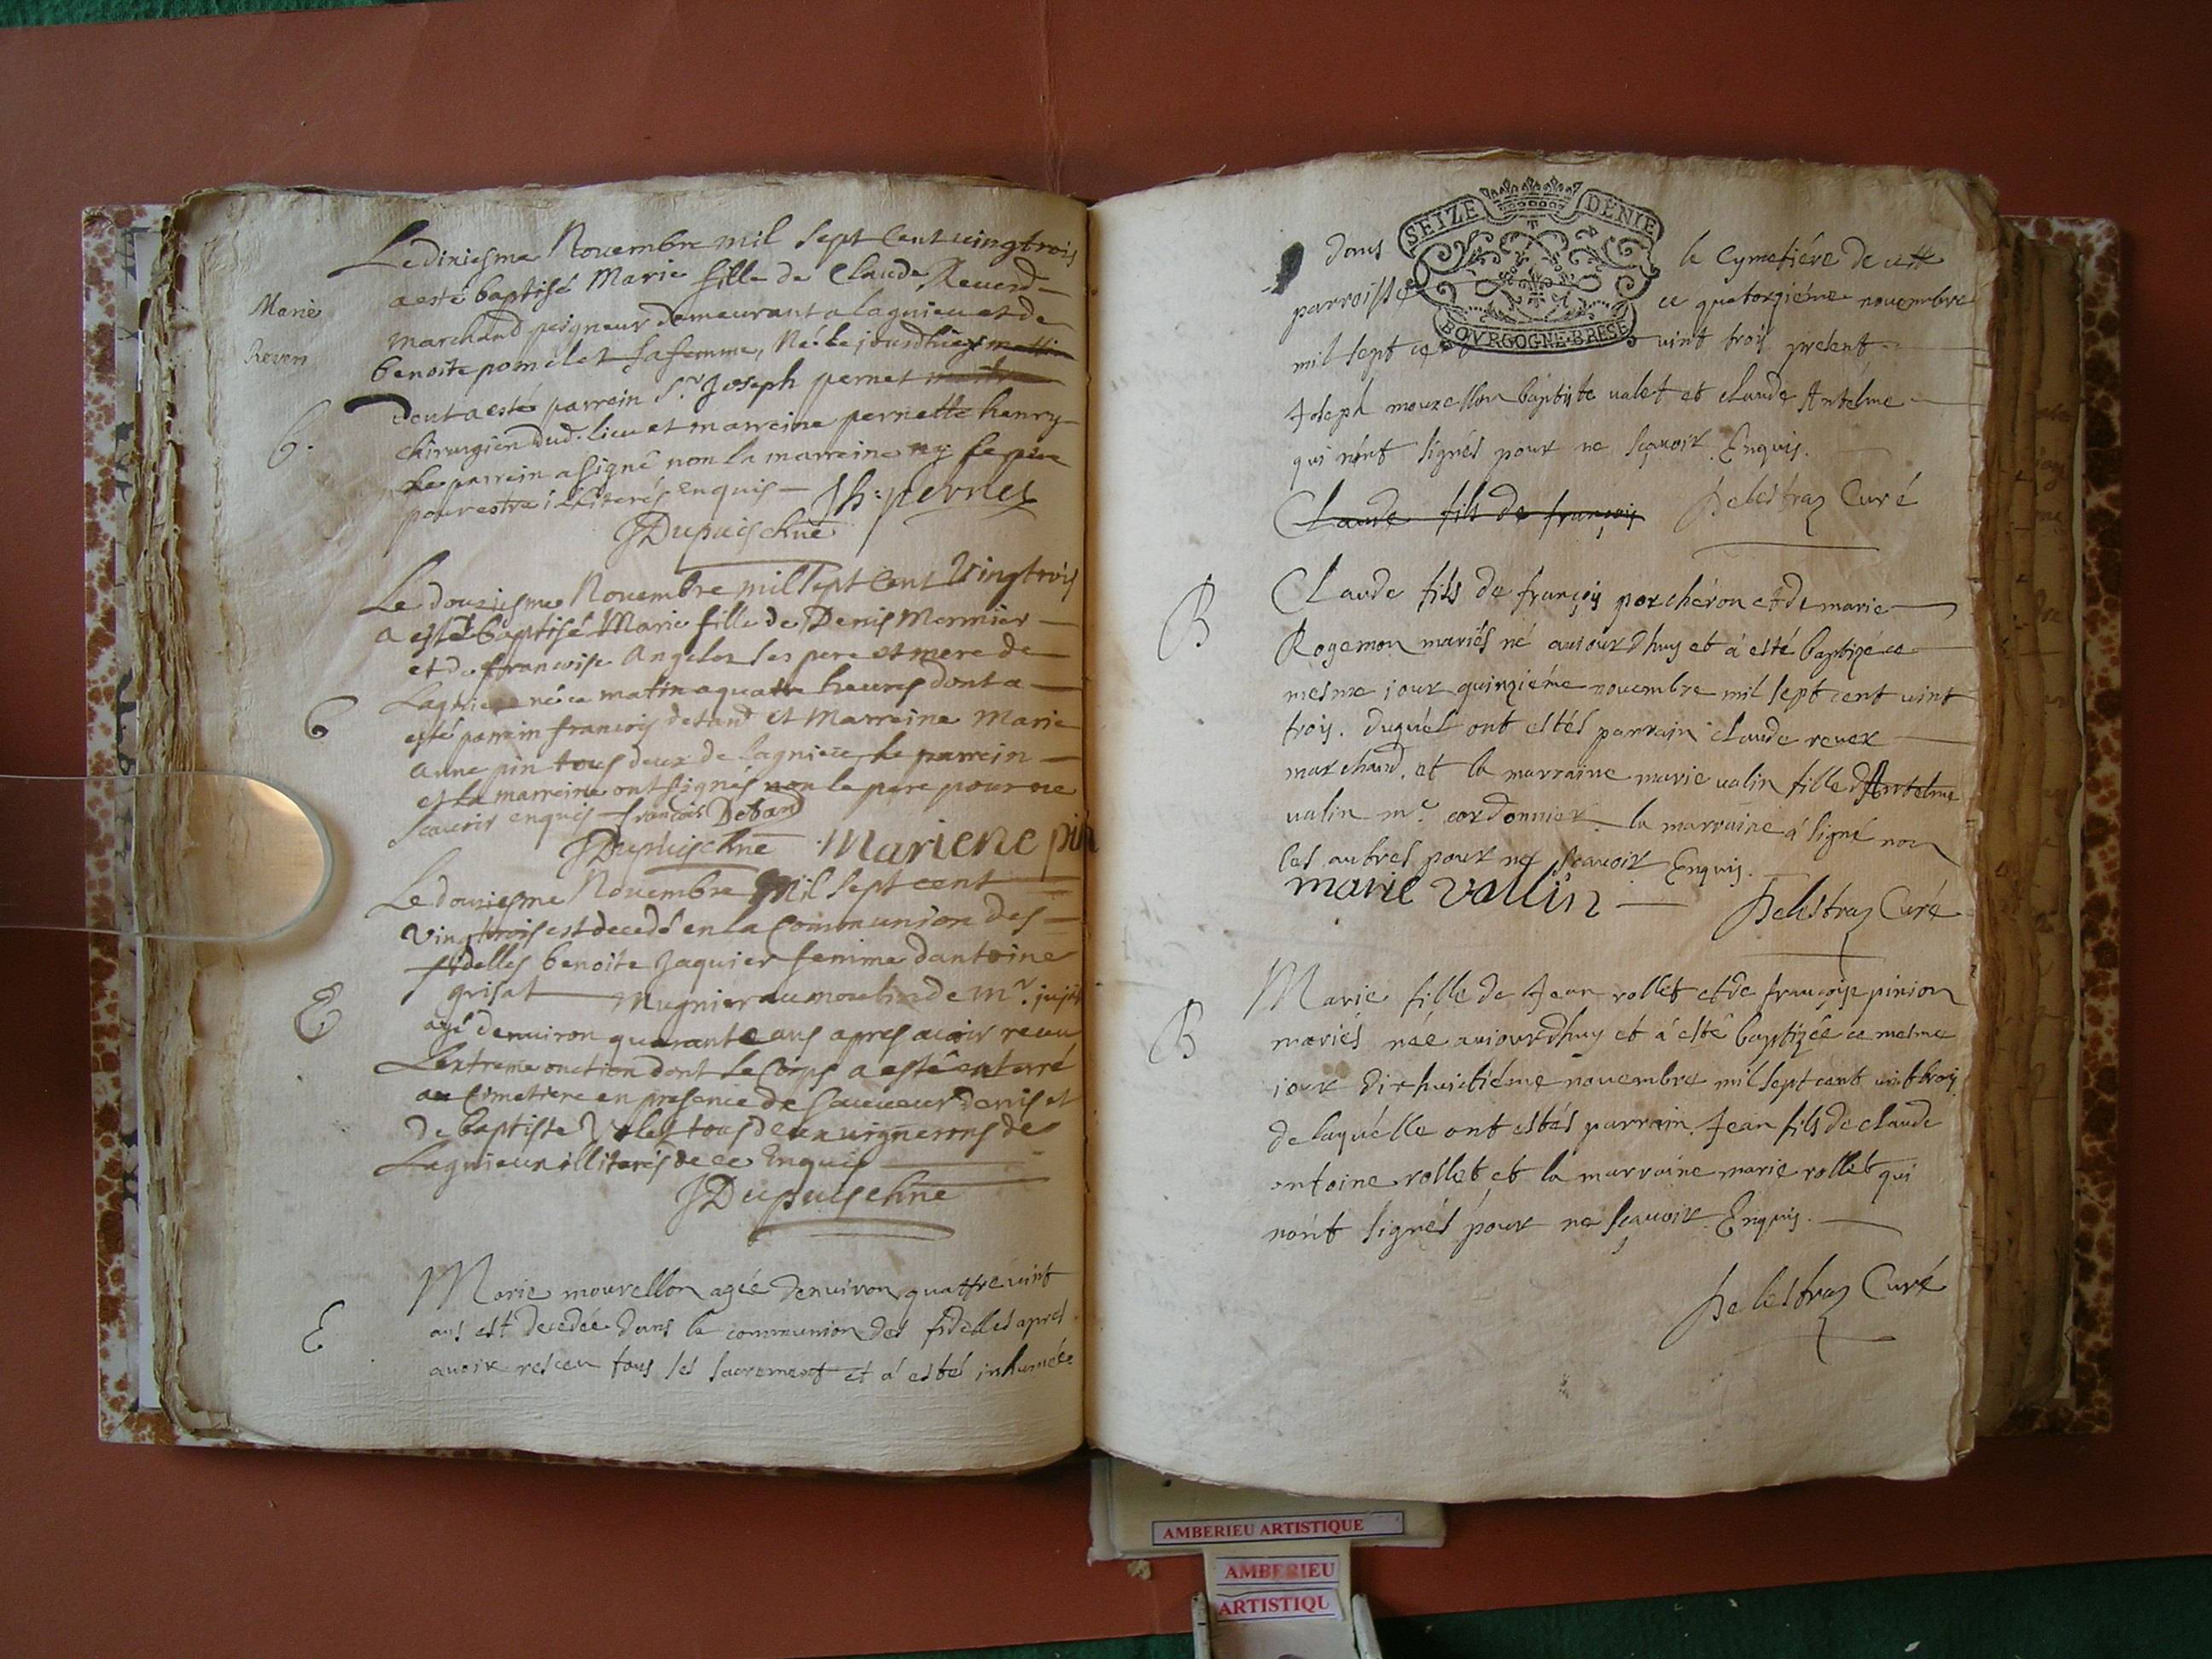 Le dixiesme Novembre mil sept Cent vingtrois
a esté baptisé Marie fille de Claude Reverd
Marchand peigneur demeurant a lagnieu et de
benoite pomelet sa femme, Née le jourdhier
dont a esté parrein Sr. Joseph pernet
chirurgien dud. lieu et marreine pernette henry
Le parrein a signé non la marreine ny le pere
pour estre illiterés enquis — Jh: pernet
JDupuis chne
Marie
Revers
b.
Le douziesme Novembre mil sept Cent Vingtrois
a esté baptisé Marie fille de Denis Monnier
et de francoise Angelot ses pere et mere de
Lagnieu née ce matin a quatre heures dont a
esté parrein francois detand et Marreine Marie
anne pin tous deux de lagnieu, le parrein
et la marreine ont signés non le pere pour ne
scavoir enquis francois Detand
JDupuis chne Mariene pin
b
Le douziesme Novembre Mil sept cent
Vingtrois est decedé en la Communion des
fidelles benoite Jaquier femme dantoine
grisat — Mugnier au moulin de Mr.
agé denviron quarante ans apres avoir receu
Lextreme onction dont le Corps a esté enterré
au Cimetiere en presence de Sauveur denis et
de baptiste Valet tous deux vignerons de
Lagnieu illiterés de ce Enquis
JDupuis chne
E
Marie mourellon agée denviron quattre vint
ans est decedée dans la communion des fidelles apres
avoir resceu tous ses sacrement et á estéé inhumée
E
SEIZE DENIE
BOVRGOGNE·BRESE
dans le Cymetiére de cette
parroisse ce quatorziéme novembre
mil sept ce vint trois present
Joseph mourellon baptiste valet et claude Antelme
qui nónt signés pour ne sçavoir Enquis.
Claude fils de françois Delestraz Curé
B
Claude fils de françois porchéron et de marie
Rogemon mariés né aujourdhuy et á esté baptizé ce
mesme jour quinziéme novembre mil sept cent vint
trois. duquél ont estés parrain claude rever
marchand. et la marraine marie valin fille dAntelme
valin mc. cordonnier la marraine á signé non
les autres pour ne scavoir Enquis.
marie vallin — Delestraz Curé
B
Marie fille de Jean rollet et de françoise pinion
mariés née aujourdhuy et á esté baptizée ce mesme
jour dixhuictiéme novembre mil sept cent vint trois
de laquélle ont estés parrain Jean fils de claude
antoine rollet et la marraine marie rollet qui
nónt signés pour ne sçavoir Enquis.
Delestraz Curé
AMBERIEU ARTISTIQUE
AMBERIEU
ARTISTIQU